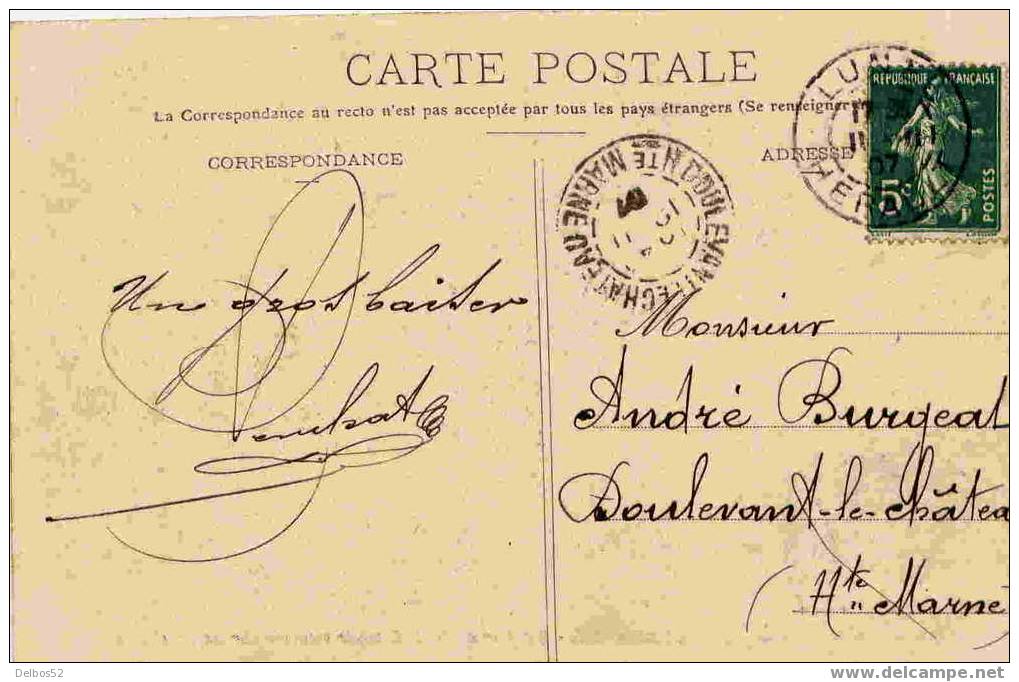 CARTE POSTALE
La Correspondance au recto n'est pas acceptée par tous les pays étrangers (Se renseigner
CORRESPONDANCE
ADRESSE
RÉPUBLIQUE FRANÇAISE
5c
POSTES
HERAULT
DOULEVANT-LE-CHATEAU
HTE MARNE
Un gros baiser
Monsieur
André Burgeat
Doulevant-le-châtea
(Hte Marne
Delbos52
www.delcampe.net